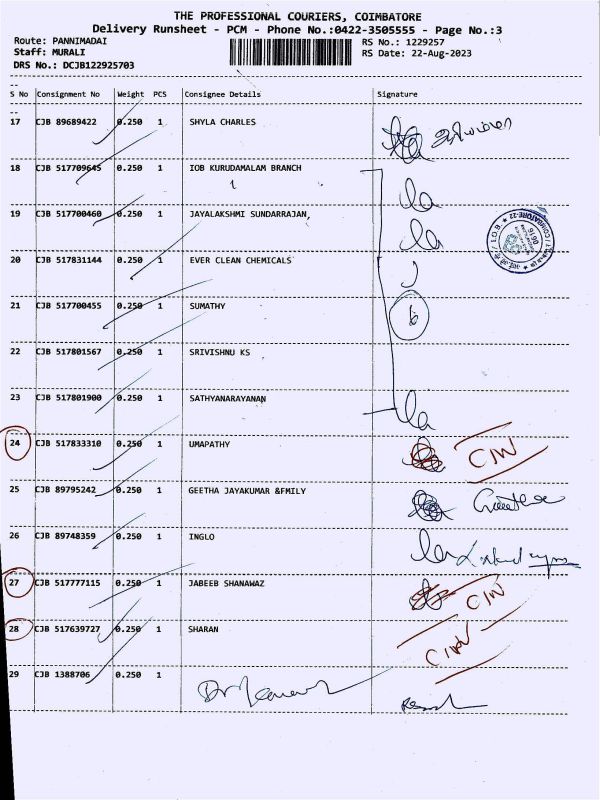 THE PROFESSIONAL COURIERS, COIMBATORE
Delivery Runsheet - PCM - Phone No.:0422-3505555 - Page No.:3
Route: PANNIMADAI RS No.: 1229257
Staff: MURALI RS Date: 22-Aug-2023
DRS No.: DCJB122925703
S No Consignment No Weight PCS Consignee Details Signature
17 CJB 89689422 0.250 1 SHYLA CHARLES
18 CJB 517709645 0.250 1 IOB KURUDAMALAM BRANCH
1
19 CJB 517700460 0.250 1 JAYALAKSHMI SUNDARRAJAN,
20 CJB 517831144 0.250 1 EVER CLEAN CHEMICALS
21 CJB 517700455 0.250 1 SUMATHY
6
22 CJB 517801567 0.250 1 SRIVISHNU KS
23 CJB 517801900 0.250 1 SATHYANARAYANAN
24 CJB 517833310 0.250 1 UMAPATHY
25 CJB 89795242 0.250 1 GEETHA JAYAKUMAR &FMILY
26 CJB 89748359 0.250 1 INGLO
27 CJB 517777115 0.250 1 JABEEB SHANAWAZ
28 CJB 517639727 0.250 1 SHARAN
29 CJB 1388706 0.250 1